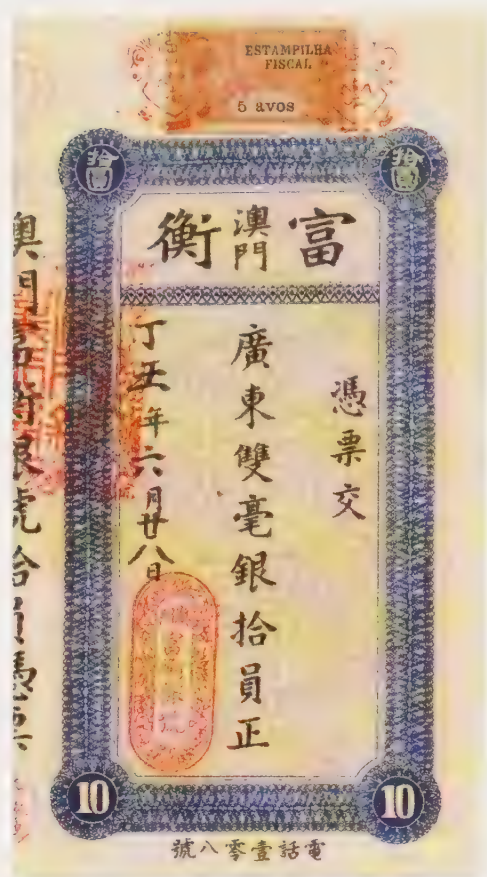 ESTAMPILHA
FISCAL
5 avos
拾圓
拾圓
富
澳門
衡
憑票交
廣東雙毫銀拾員正
丁丑年六月廿八日
10
10
電話壹零八號